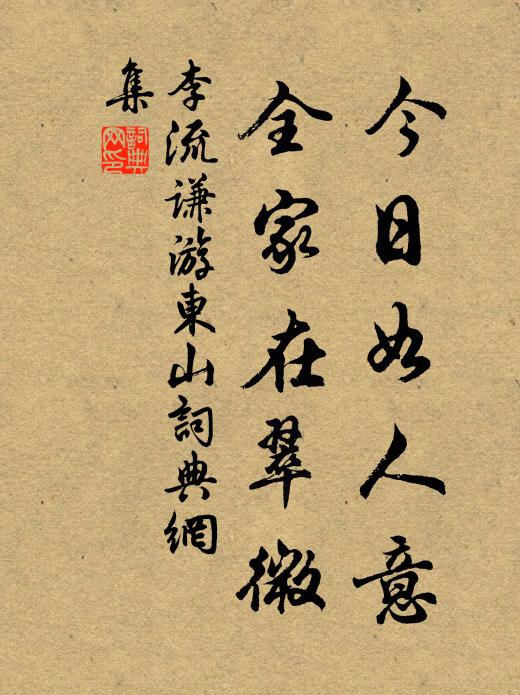 今日如人意
全家在翠微
李流谦游東山詞典網
集
詞典网印